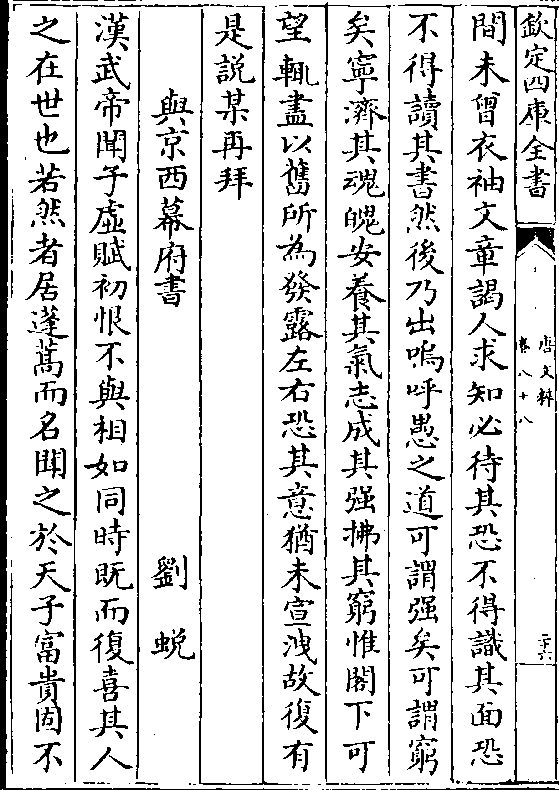 欽定四庫全書
唐文粹
卷八十八
二十六
間未曾衣袖文章謁人求知必待其恐不得識其面恐
不得讀其書然後乃出嗚呼愚之道可謂强矣可謂窮
矣寧濟其魂魄安養其氣志成其强拂其窮惟閣下可
望輒盡以舊所為發露左右恐其意猶未宣洩故復有
是説某再拜
與京西幕府書　劉蛻
漢武帝聞子虛賦初恨不與相如同時既而復喜其人
之在世也若然者居蓬蒿而名聞之於天子富貴固不